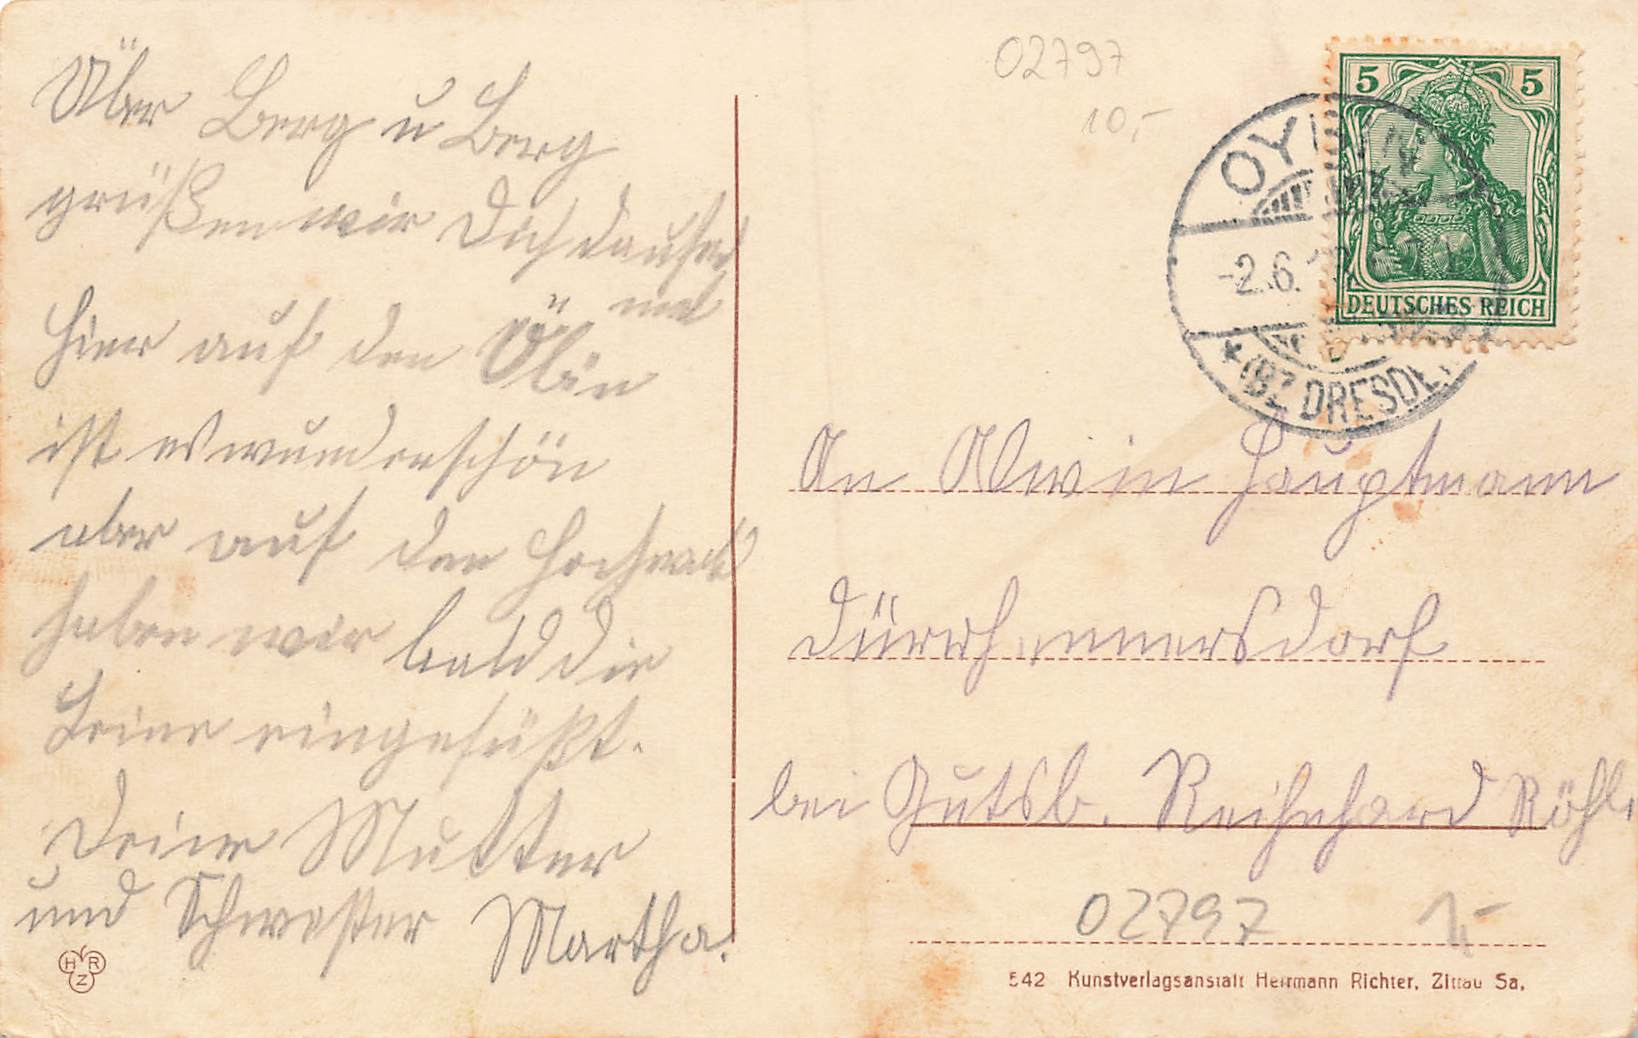 Über Berg u Berg
grüßen wir Dich tausend
mal
Hier auf den Öbin
ist es wunderschön
aber auf den Hochwald
haben wir bald die
Beine eingebüßt.
Deine Mutter
und Schwester Martha.
HRZ
02797
10,-
5 5
DEUTSCHES REICH
OYBIN
-2.6.
*(BZ DRESDEN)
An Alwin Hauptmann
Dürrhennersdorf
bei Gutsb. Reihnhard Röhle
02797 1,-
542 Kunstverlagsanstalt Herrmann Richter, Zittau Sa.